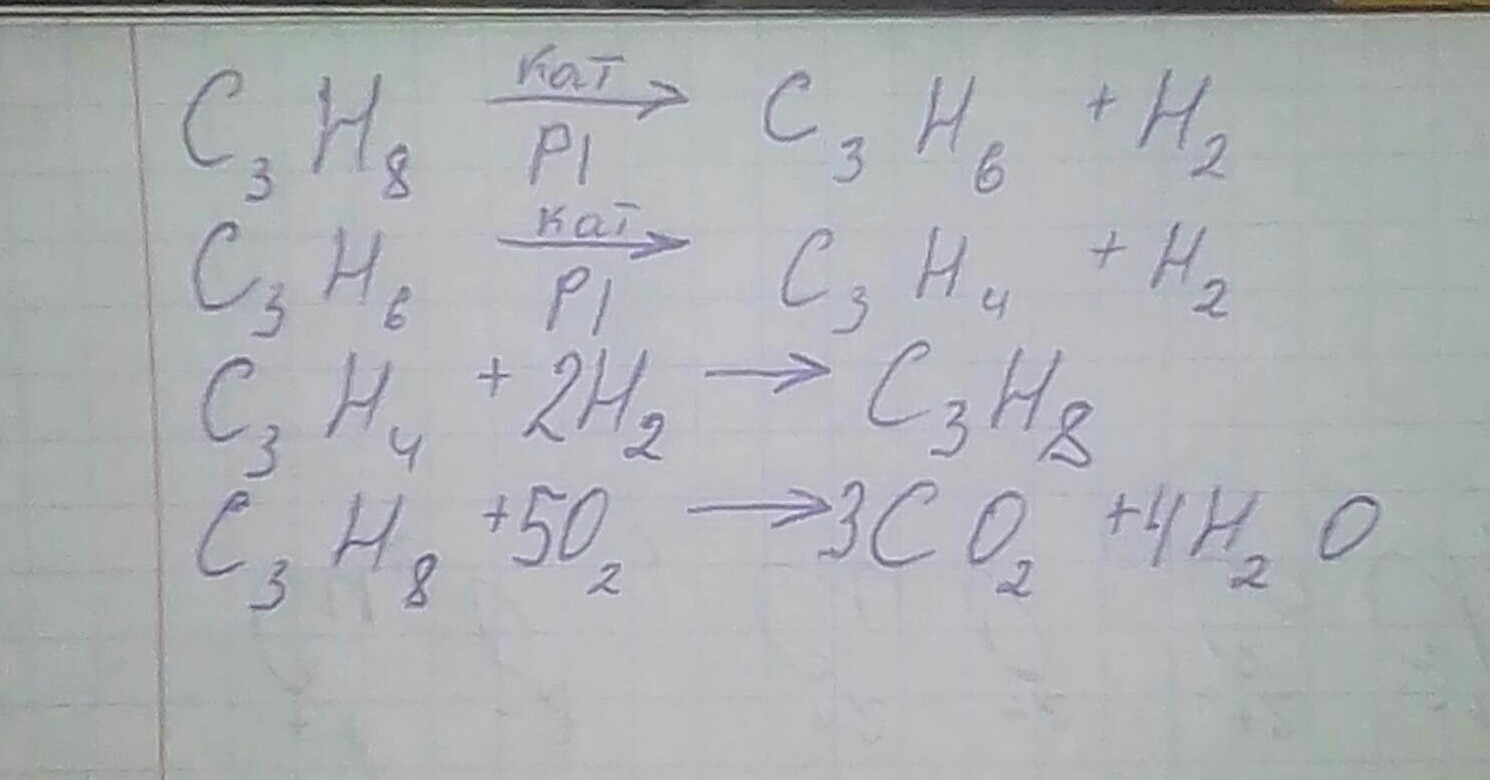 C₃H₈ кат → Pt C₃H₆ + H₂
C₃H₆ кат → Pt C₃H₄ + H₂
C₃H₄ + 2H₂ → C₃H₈
C₃H₈ + 5O₂ → 3CO₂ + 4H₂O